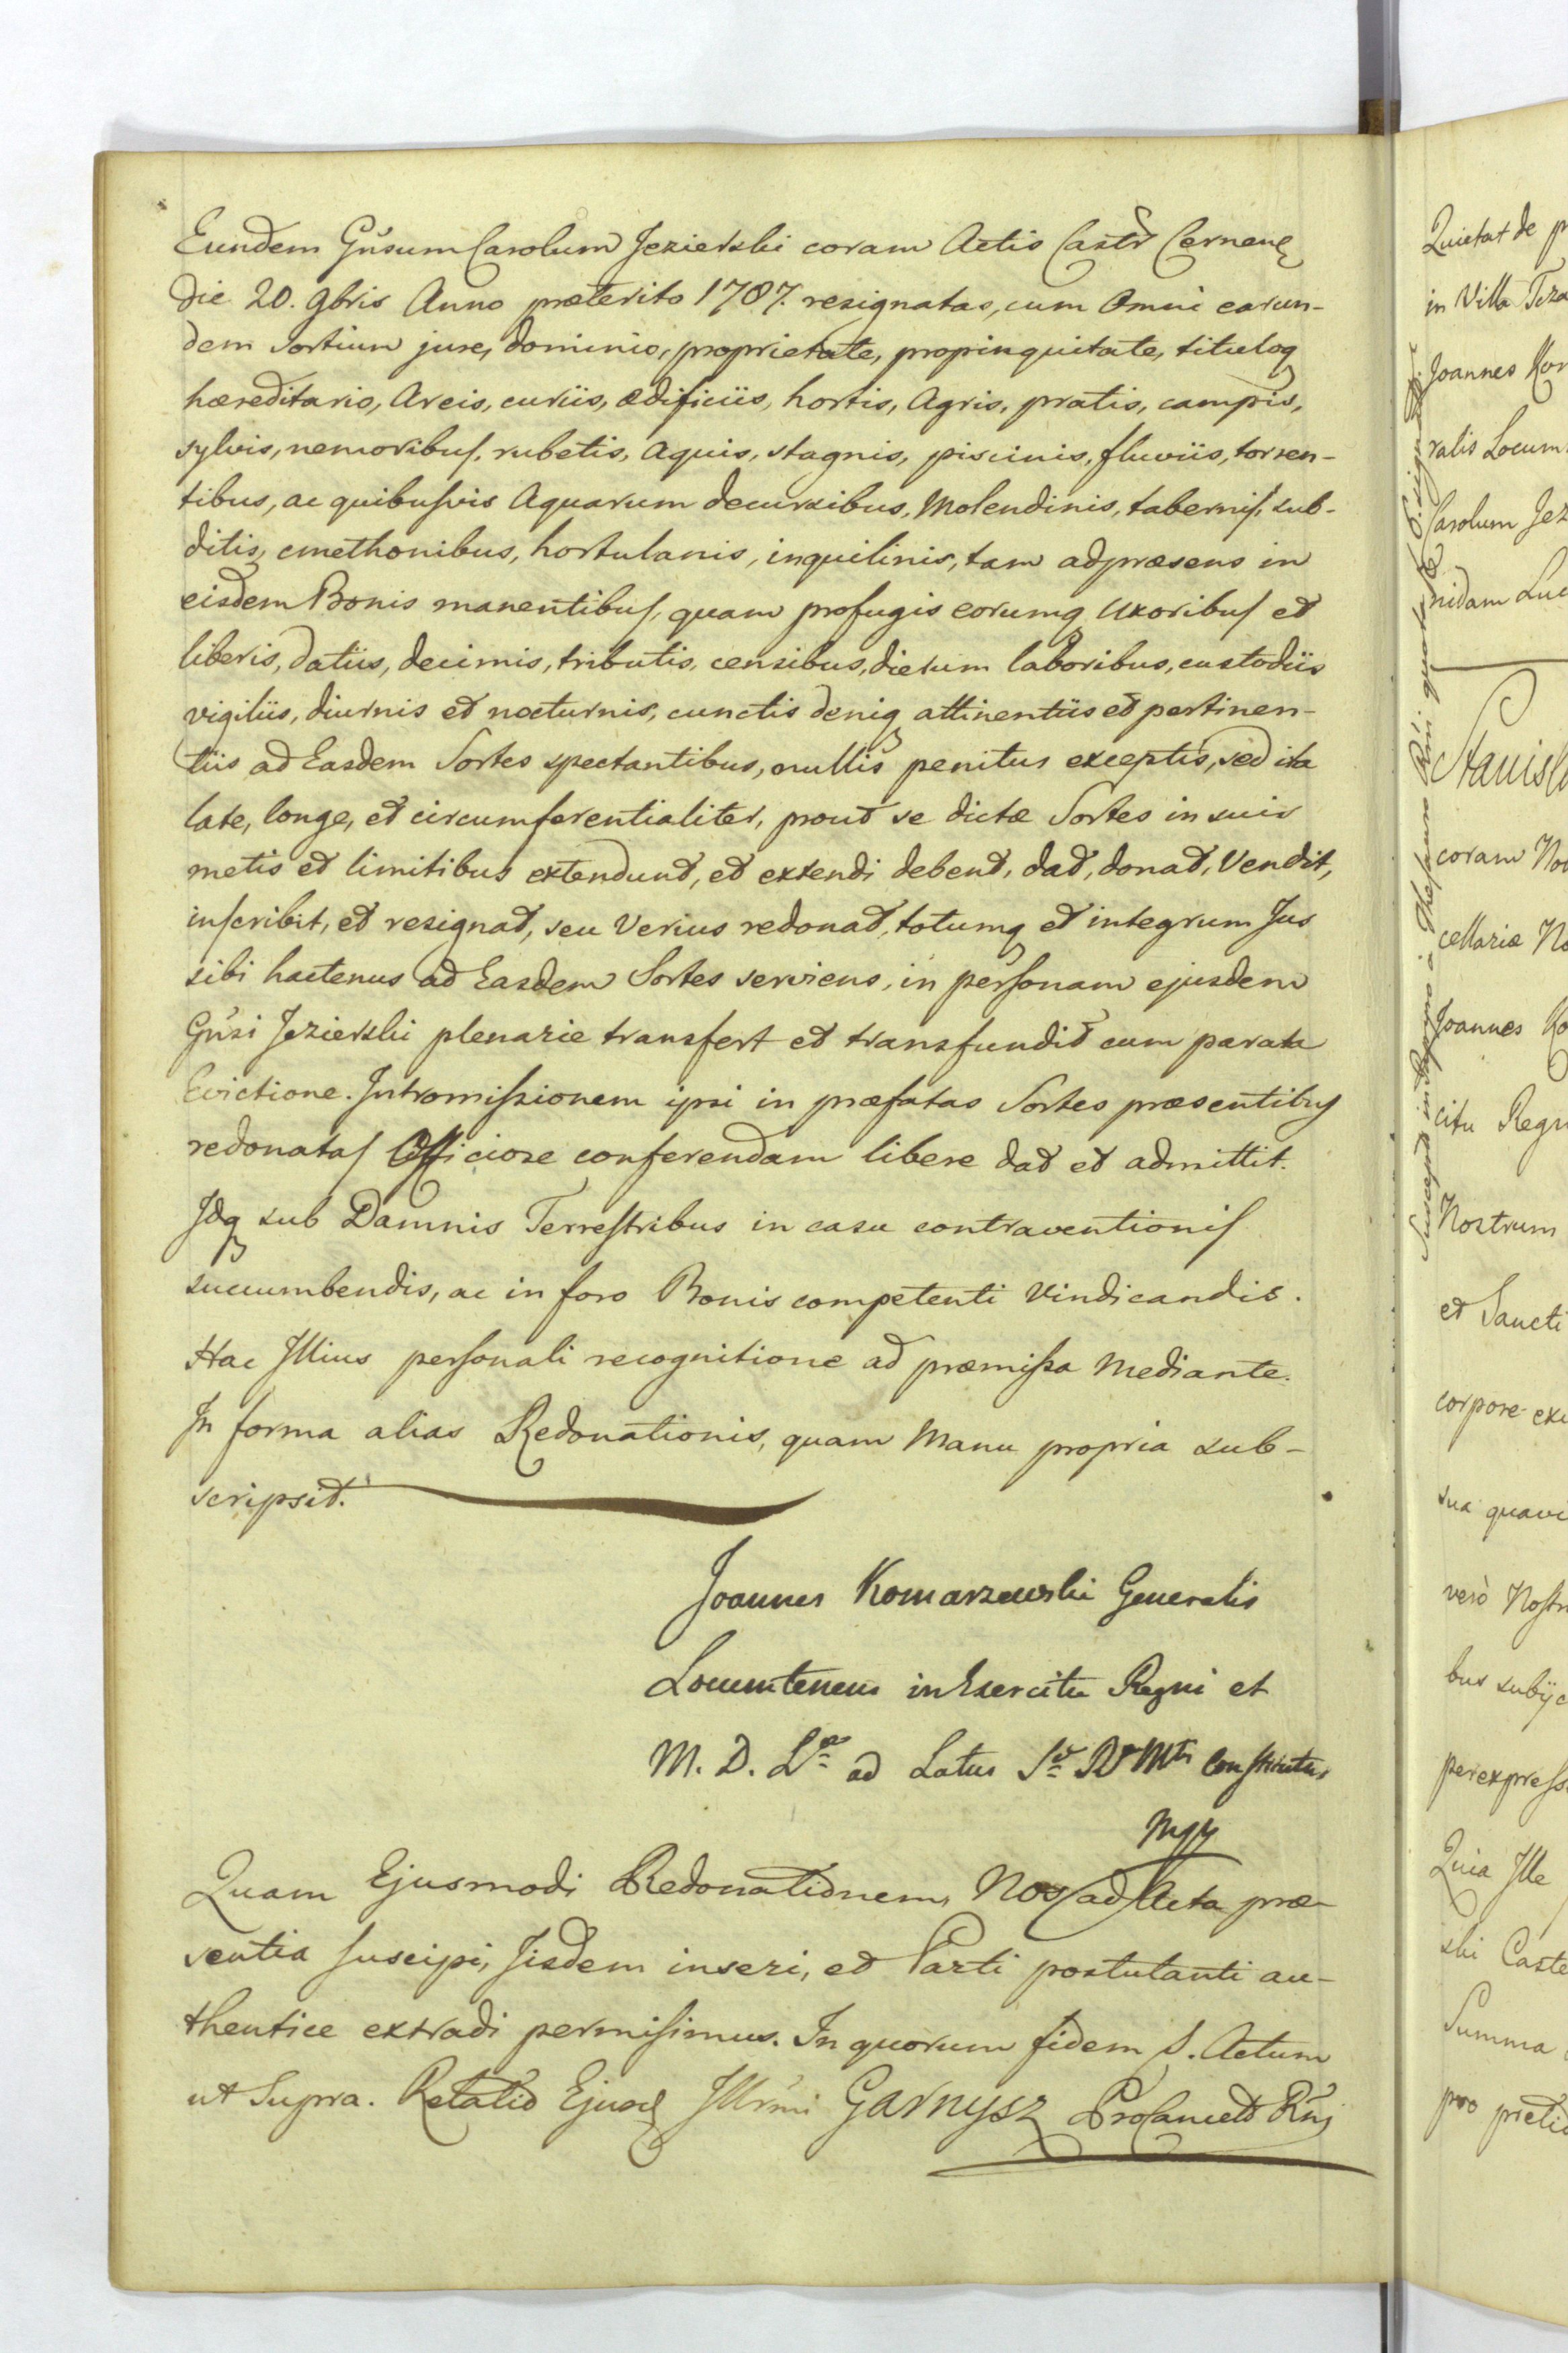 Eundem Gñsum Carolum Jezierski coram Actis Castr Cernen
die 20. 9bris Anno præterito 1787. resignatas, cum Omni earun-
dem Sortium jure, dominio, proprietate, propinquitate, tituloq
hæreditario, Areis, curiis, ædificiis, hortis, Agris, pratis, campis,
sylvis, nemoribus, rubetis, Aquis, stagnis, piscinis, fluviis, torren-
tibus, ac quibusvis Aquarum decursibus, Molendinis, tabernis, sub-
ditis, cmethonibus, hortulanis, inquilinis, tam adpræsens in
eisdem Bonis manentibus, quam profugis eorumq Uxoribus et
liberis, datiis, decimis, tributis, censibus, dierum laboribus, custodiis
vigiliis, diurnis et nocturnis, cunctis deniq attinentiis et pertinen-
tiis ad Easdem Sortes spectantibus, nullis penitus exceptis, sed ita
late, longe, et circumferentialiter, prout se dictæ Sortes in suis
metis et limitibus extendunt, et extendi debent, dat, donat, Vendit,
inscribit, et resignat, seu Verius redonat, totumq et integrum Jus
sibi hactenus ad Easdem Sortes serviens, in personam ejusdem
Gñsi Jezierski plenarie transfert et transfundit cum parata
Evictione. Intromissionem ipsi in præfatas Sortes præsentibus
redonatas Officiose conferendam libere dat et admittit.
Idq sub Damnis Terrestribus in casu contraventionis
succumbendis, ac in foro Bonis competenti Vindicandis.
Hac Illius personali recognitione ad præmissa Mediante.
In forma alias Redonationis, quam Manu propria sub-
scripsit.
Joannes Komarzewski Generalis
Locumtenens in Exercitu Regni et
M. D. L. ad Latus S. R. Mtis Constitutus
Mpp
Quam Ejusmodi Redonationem, Nos ad Acta præ-
sentia suscipi, Iisdem inseri, et Parti postulanti au-
thentice extradi permisimus. In quorum fidem S. Actum
ut Supra. Relatio Ejusd Illrmi Garnysz ProCancell Rni
Quietat de
in Villa
Joannes
ralis Locum
Carolum Jez
nidam
Stanisl
coram
cellariæ
Joannes
citu Regn
Nostrum
et Sancti
corpore
sua quavi
verò Nostr
bus subijc
per express
Quia Ille
ski Caste
Summa
pro pretio